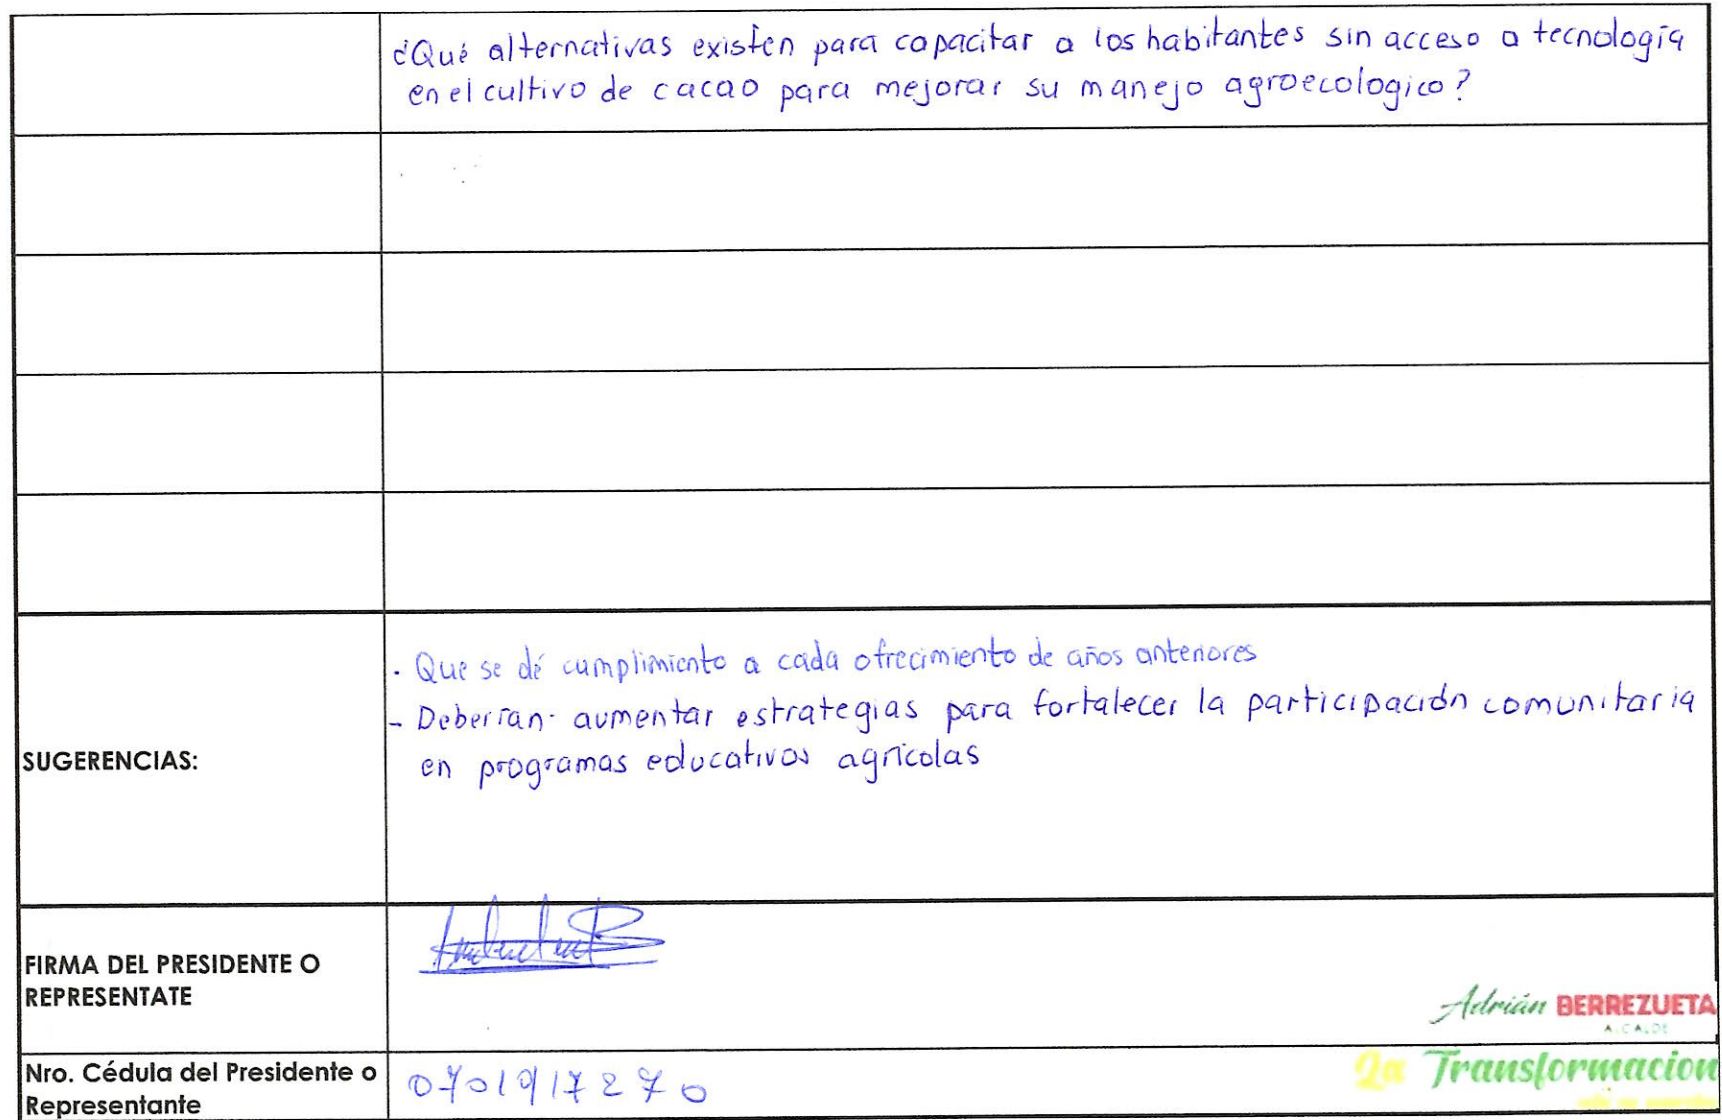 ¿Qué alternativas existen para capacitar a los habitantes sin acceso a tecnología
en el cultivo de cacao para mejorar su manejo agroecologico?
- Que se dé cumplimiento a cada ofrecimiento de años anteriores
- Deberían aumentar estrategias para fortalecer la participación comunitaria
en programas educativos agrícolas
SUGERENCIAS:
FIRMA DEL PRESIDENTE O
REPRESENTATE
Adrián BERREZUETA
ALCALDE
Nro. Cédula del Presidente o
Representante
0701917270
La Transformacion